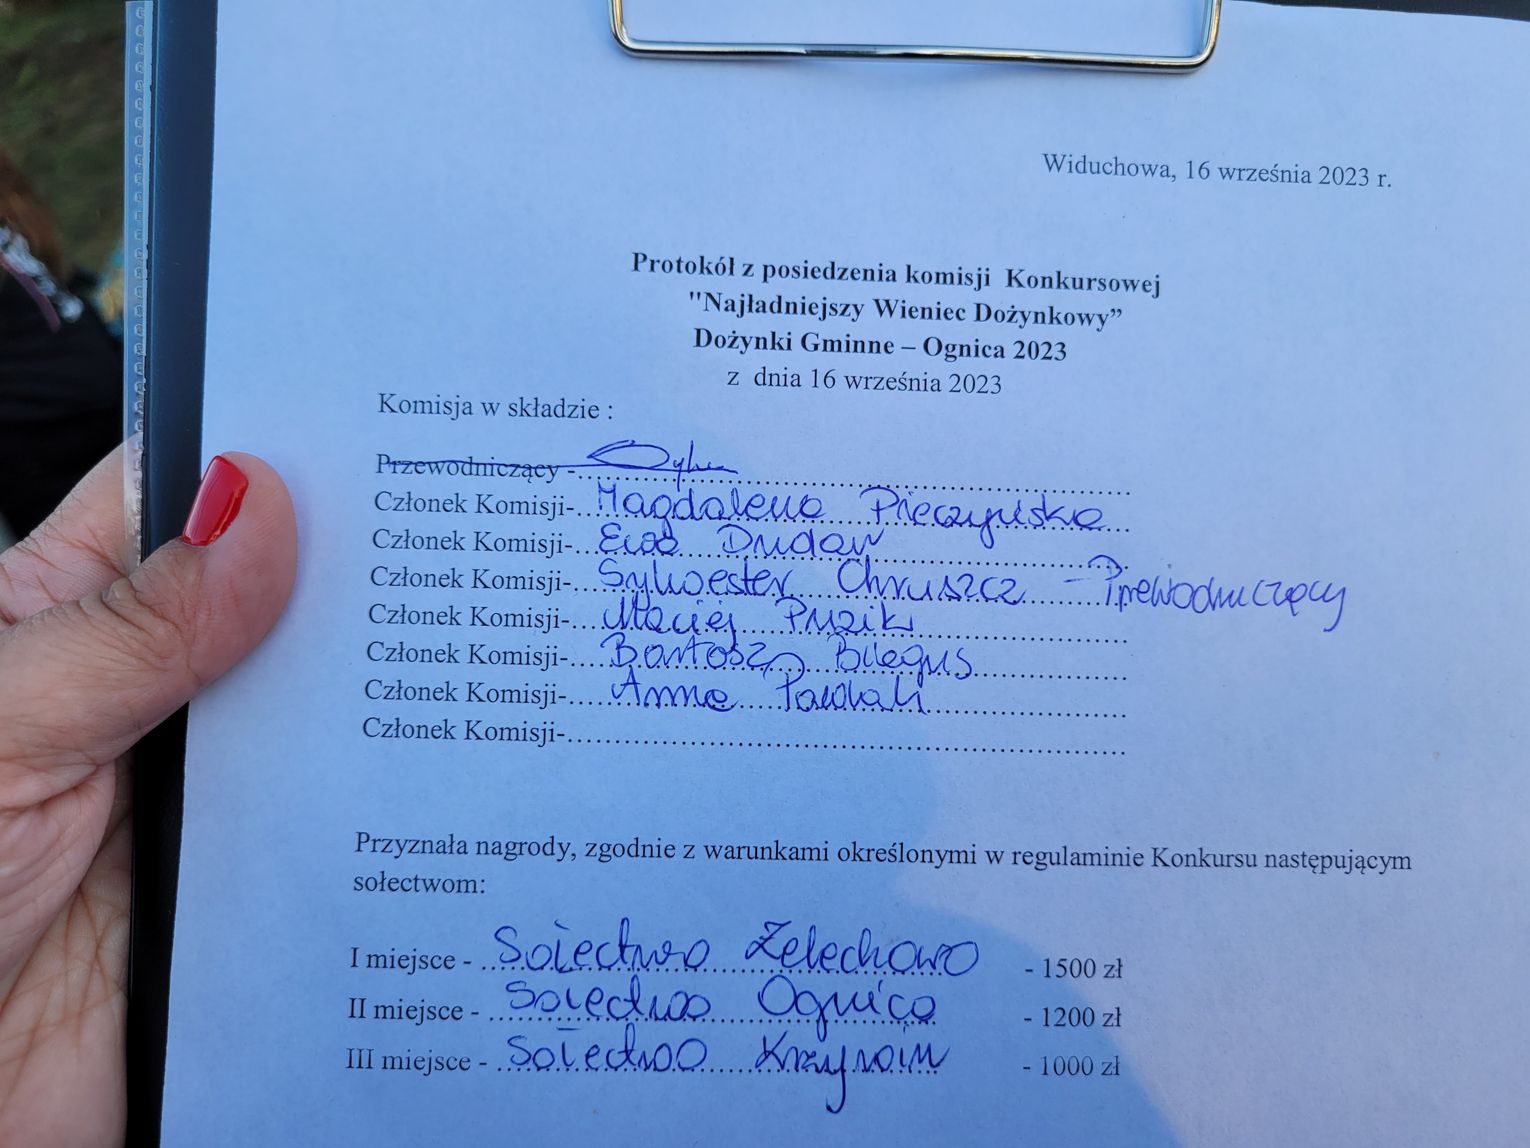 Widuchowa, 16 września 2023 r.
Protokół z posiedzenia komisji Konkursowej
"Najładniejszy Wieniec Dożynkowy”
Dożynki Gminne – Ognica 2023
z dnia 16 września 2023
Komisja w składzie :
Przewodniczący -
Członek Komisji- Magdalena Pieczyńska
Członek Komisji- Ewa Dudar
Członek Komisji- Sylwester Chruszcz - Przewodniczący
Członek Komisji- Maciej Puzik
Członek Komisji- Bartosz
Członek Komisji- Anna
Członek Komisji-
Przyznała nagrody, zgodnie z warunkami określonymi w regulaminie Konkursu następującym
sołectwom:
I miejsce - Sołectwo Żelechowo - 1500 zł
II miejsce - Sołectwo Ognica - 1200 zł
III miejsce - Sołectwo Krzywin - 1000 zł